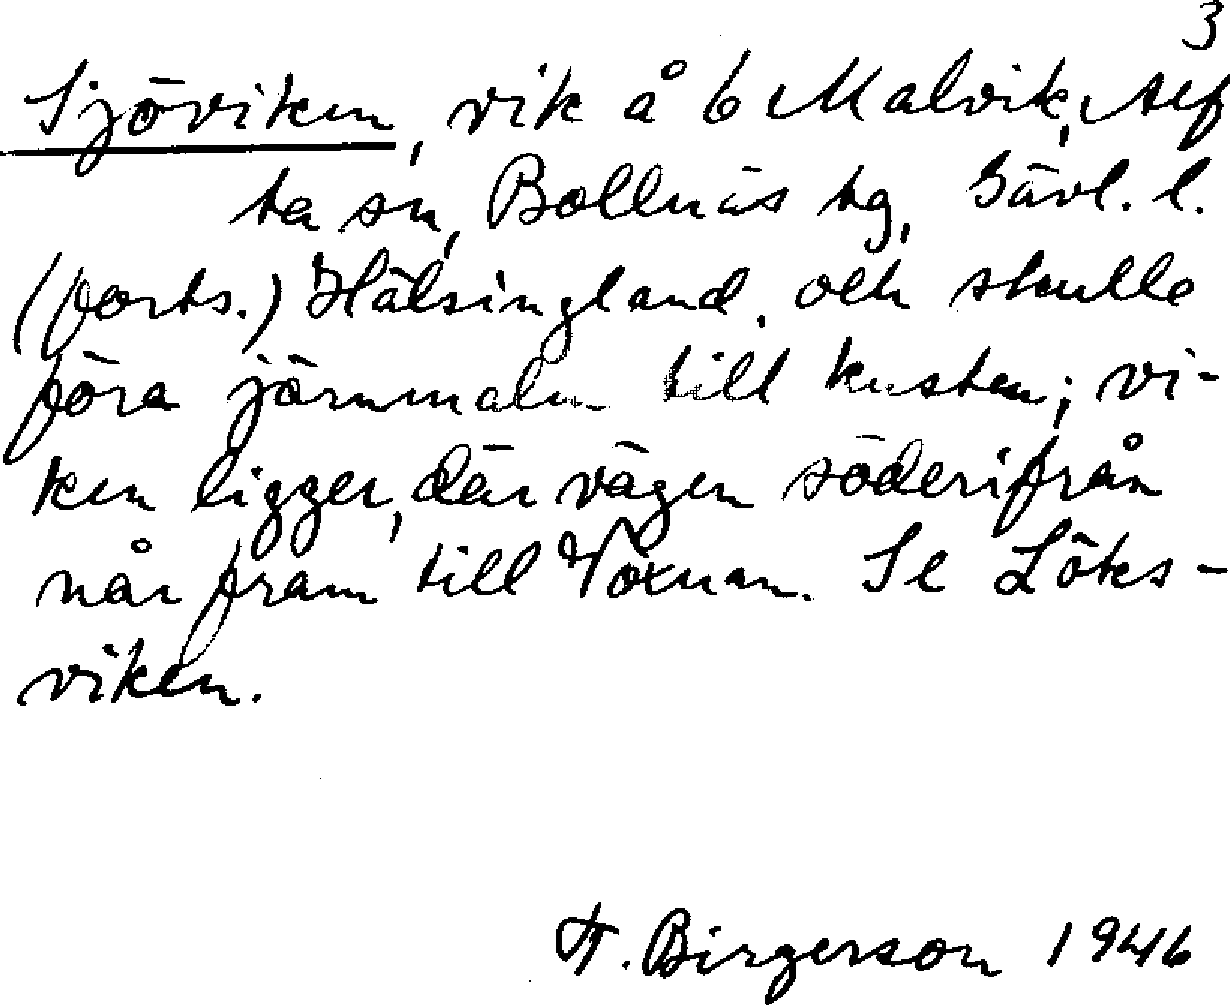 3
Sjöviken, vik å 6 Malvik, Alf
ta sn, Bollnäs tg, Gävl. l.
(forts.) Hälsingland. och skulle
föra järnmalm till kusten; vi-
ken ligger, där vägen söderifrån
når fram till Voxnan. Se Löts-
viken.
F. Birgerson 1946